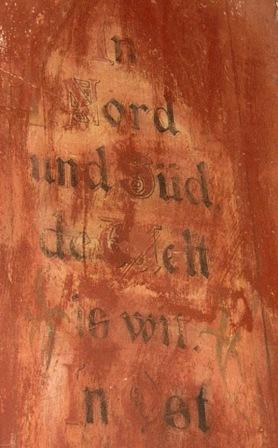 In
Nord
und Süd,
de Welt
is wit.
In Ost